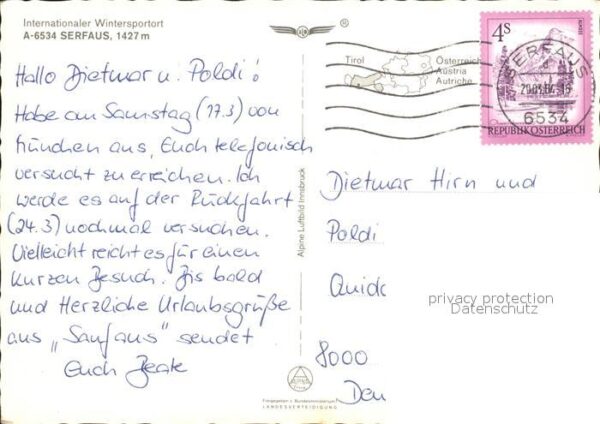 Internationaler Wintersportort
A-6534 SERFAUS, 1427 m
Hallo Dietmar u. Poldi!
Habe am Samstag (17.3) von
München aus, Euch telefonisch
versucht zu erreichen. Ich
werde es auf der Rückfahrt
(24.3) nochmal versuchen.
Vielleicht reicht es für einen
kurzen Besuch. Bis bald
und Herzliche Urlaubsgrüße
aus „Saufaus" sendet
Euch Beate
Alpine Luftbild Innsbruck
Freigegeben v. Bundesministerium f.
LANDESVERTEIDIGUNG
®
Tirol
Österreich
Austria
Autriche
4S
SERFAUS
6534
REPUBLIK ÖSTERREICH
Dietmar Hirn und
Poldi
Quidc
privacy protection
Datenschutz
8000